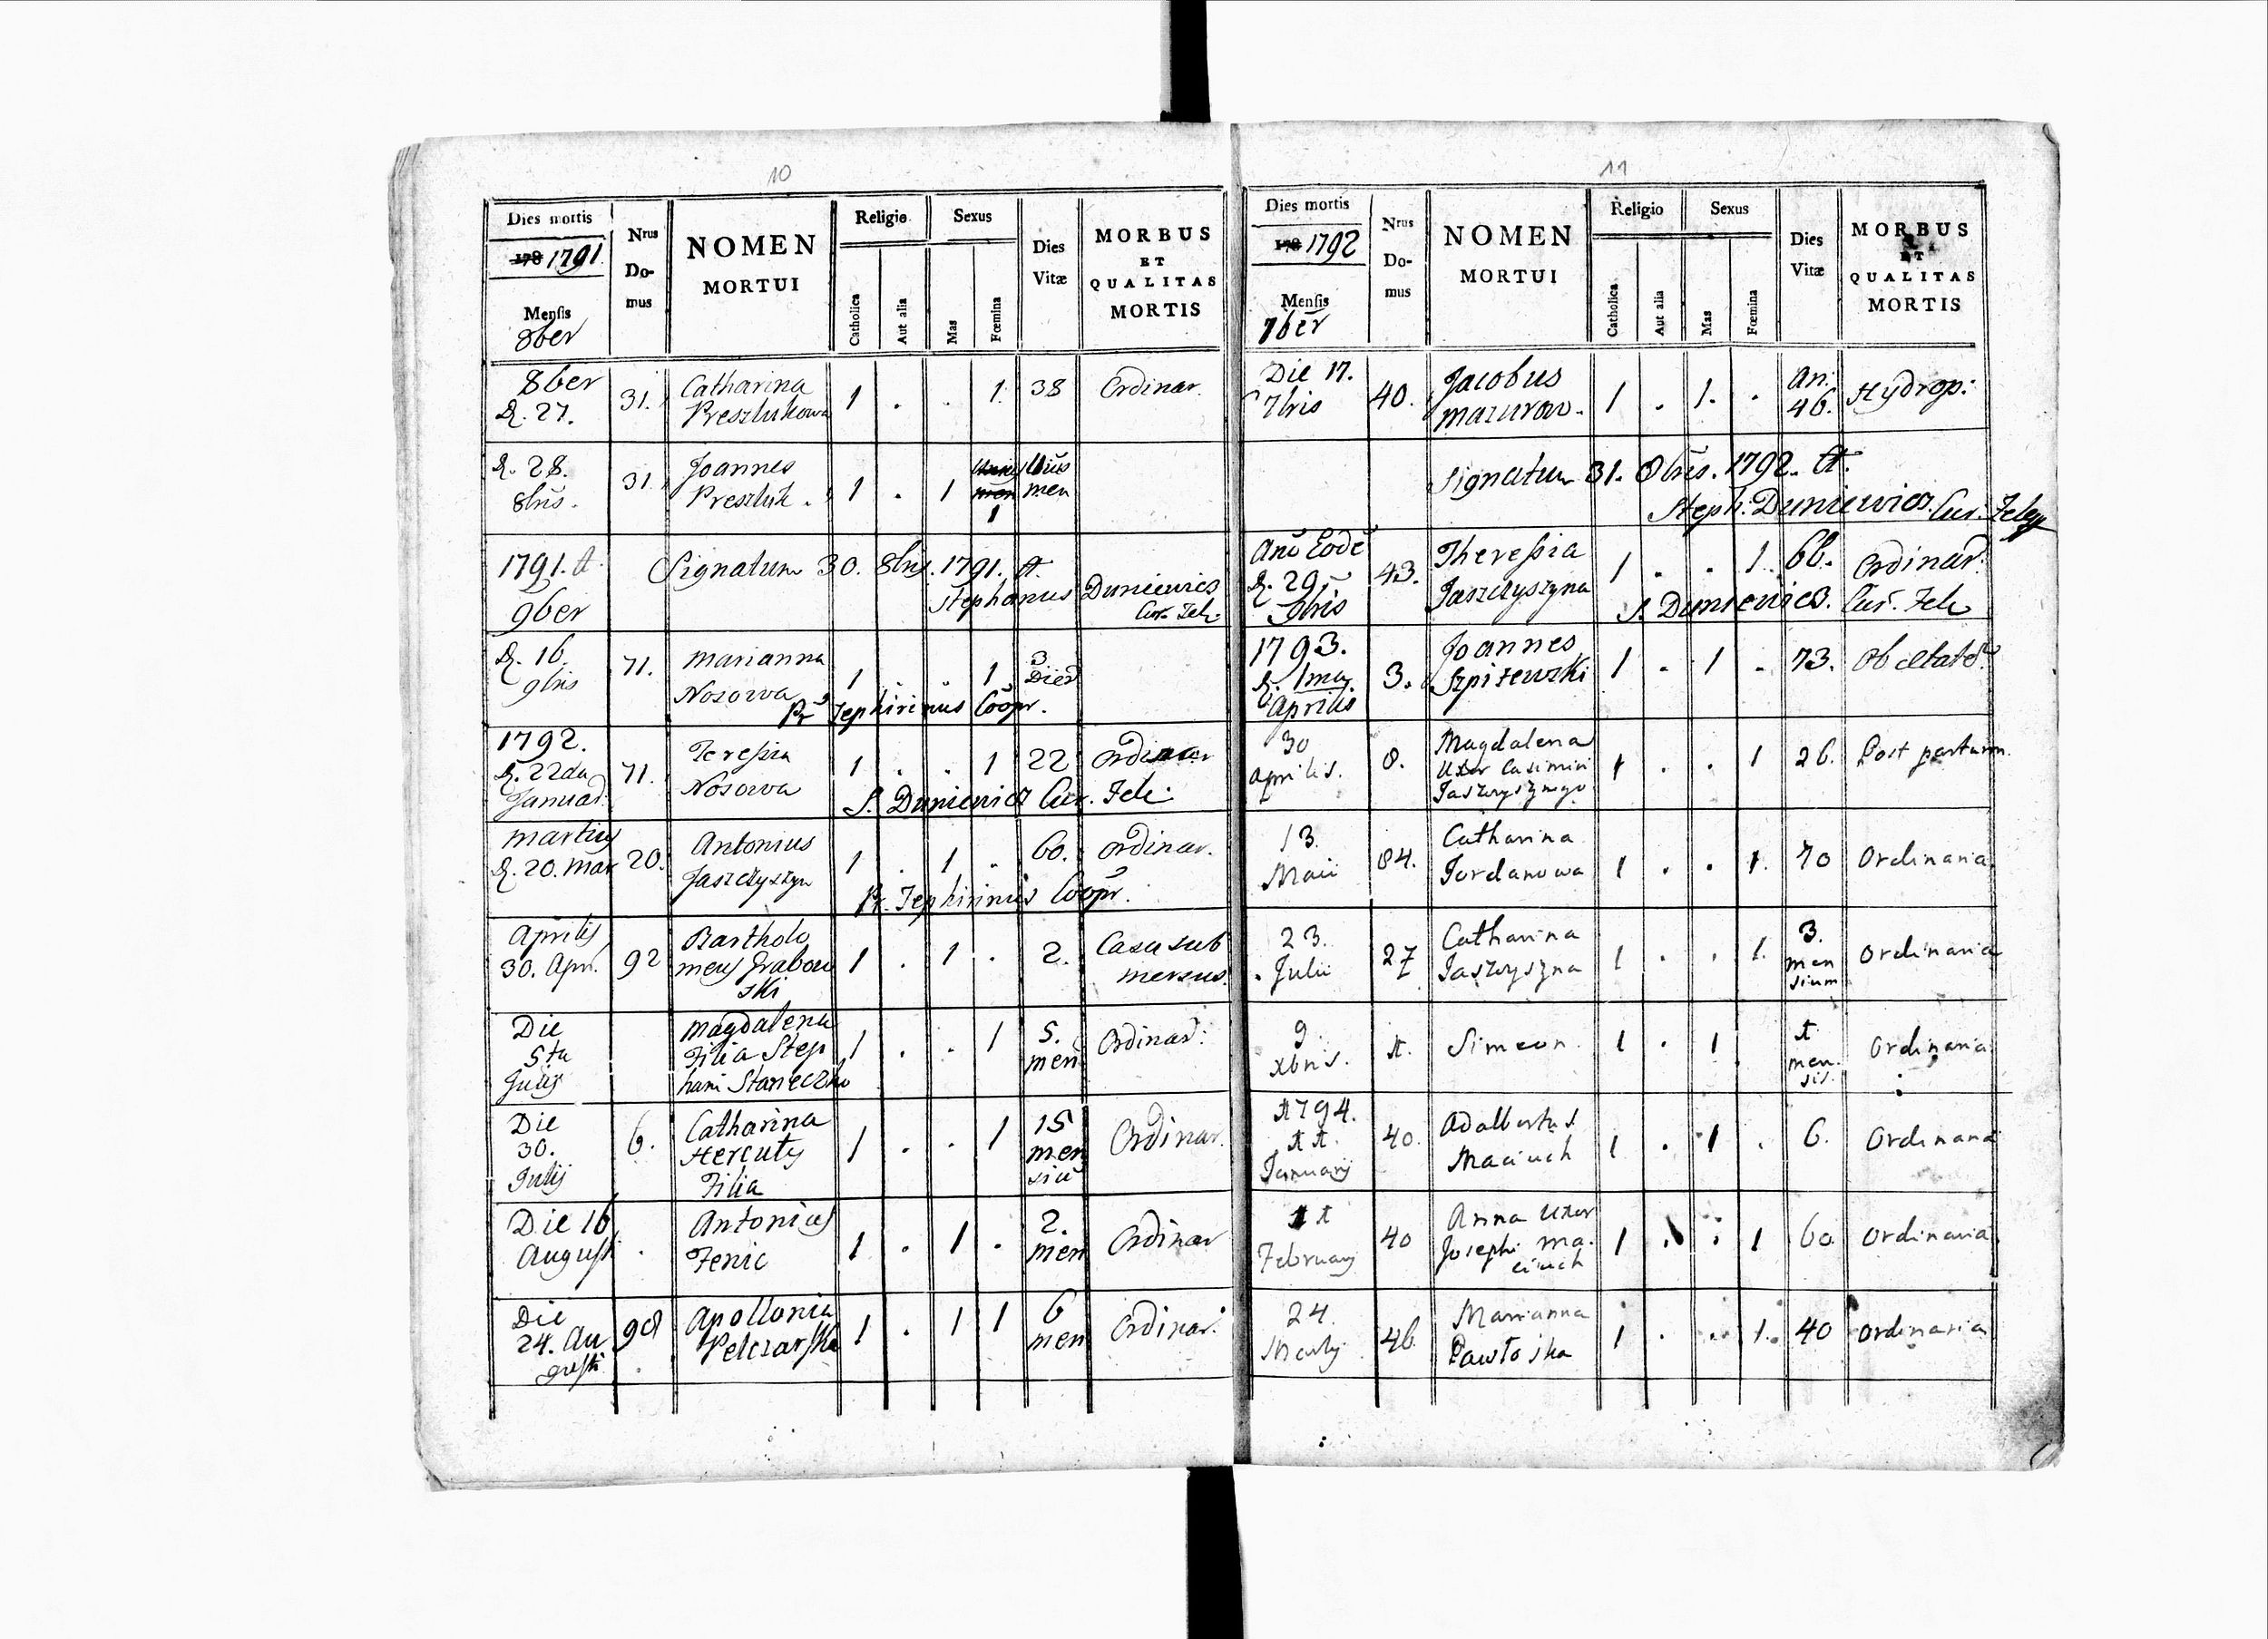 10
Dies mortis
178 1791.
Mensis
8ber
Nrus
Do-
mus
NOMEN
MORTUI
Religio
Catholica
Aut alia
Sexus
Mas
Fœmina
Dies
Vitæ
MORBUS
ET
QUALITAS
MORTIS
8ber
D. 27.
31.
Catharina
Preszlukowa
1 . . 1. 38 Ordinar.
D. 28.
8bris.
31.
Joannes
Preszluk.
1 . 1
men
1
Unius
men
1791. A
9ber
Signatum 30. 8bris. 1791. A.
Stephanus Duniewicz
Cur. Zele.
D. 16.
9bris
71.
Marianna
Nosowa
1 . . 1
3
Dier
Pr. Zephirinus Coopr.
1792.
D. 22da
Januar.
71.
Teressia
Nosowa
1 . . 1 22 Ordinar
S. Duniewicz Cur. Zele.
Martius
D. 20. Mar
20.
Antonius
Jaszczyszyn
1 . 1 . 60. Ordinar.
Pr. Zephirinus Coopr.
Aprilis
30. Apr.
92
Bartholo
meus Grabow
ski
1 . 1 . 2.
Casu sub
mersus.
Die
5ta
Julij
Magdalena
Filia Step
hani Staneczko
1 . . 1
5.
men
Ordinar:
Die
30.
Julij
6.
Catharina
Hercuty
Filia
1 . . 1
15
men
siu
Ordinar.
Die 16
Augusti
.
Antonius
Fenic
1 . 1 .
2.
men
Ordinar
Die
24. Au
gusti
98
Apollonia
Pelczarska
1 . 1 1
6
men
Ordinar.
11
Dies mortis
178 1792
Mensis
7ber
Nrus
Do-
mus
NOMEN
MORTUI
Religio
Catholica
Aut alia
Sexus
Mas
Fœmina
Dies
Vitæ
MORBUS
ET
QUALITAS
MORTIS
Die 17.
7bris
40.
Jacobus
Mazurow.
1 . 1. .
An:
46.
Hydrop:
Signatum 31. 8bris. 1792. A.
Steph: Duniewicz. Cur. Zele
Ano Eode
D. 29
9bris
43.
Theressia
Jaszczyszyna
1 . . 1. 66. Ordinar.
S. Duniewicz. Cur. Zele
1793.
D. 1ma.
Aprilis
3.
Joannes
Szpizewski
1 . 1 . 73. Ob etate
30
Aprilis.
8.
Magdalena
Uxor Casimiri
Jaszczyszynego
1 . . 1 26. Post partum.
13.
Maii
84.
Catharina
Jordanowa
1 . . 1. 70 Ordinaria.
23.
Julii
27
Catharina
Jaszczyszyna
1 . . 1.
3.
men
sium
Ordinaria
9
xbris.
1.
Simeon.
1 . 1
1
men.
sis.
Ordinaria
1794.
11.
Januarij
40.
Adalbertus
Maciuch
1 . 1 . 6. Ordinaria
11
February
40
Anna Uxor
Josephi Ma.
ciuch
1 . . 1 60 Ordinaria
24.
Martij
46.
Marianna
Pawłoska
1 . . 1. 40 Ordinaria